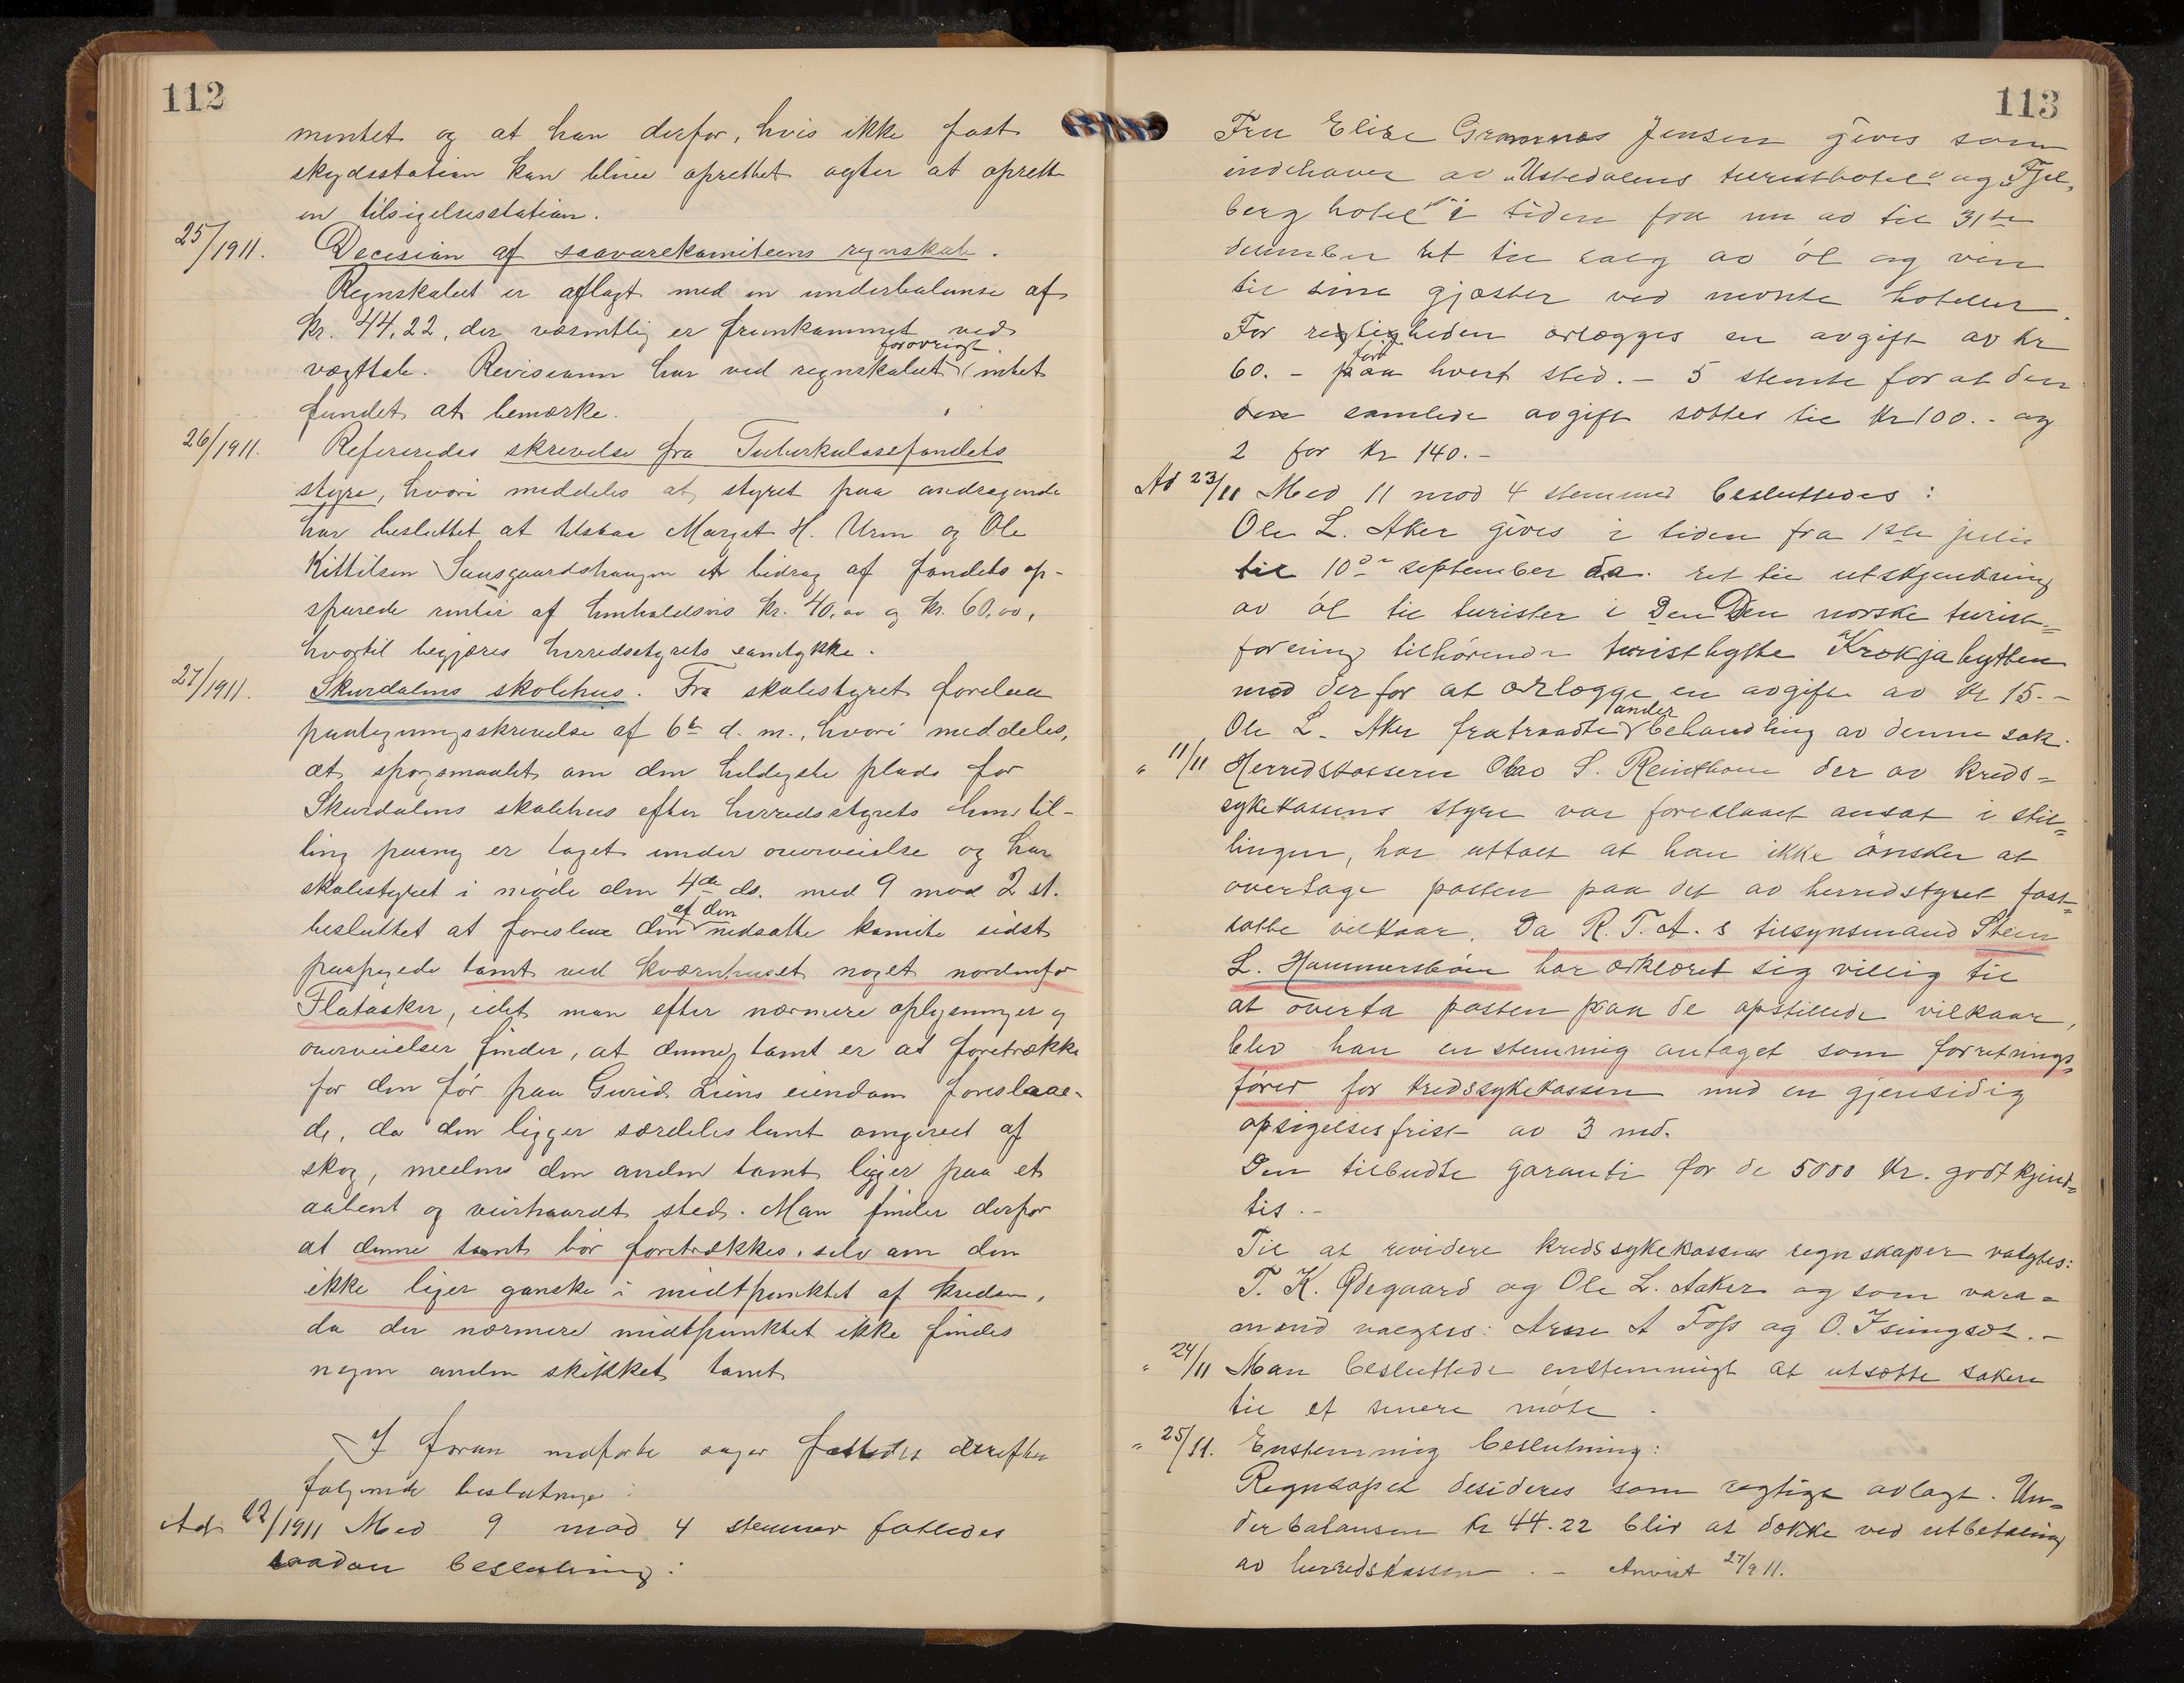 112
mentet og at han derfor, hvis ikke fast
skydsstation kan blive oprettet agter at oprette
en tilsigelsesstation.
25/1911. Decision af saavarekomiteens regnskab.
Regnskabet er aflagt med en underbalanse af
kr. 44,22, der væsentlig er fremkommet ved
vægttab. Revisionen har ved regnskabet forøvrigt intet
fundet at bemærke.
26/1911. Refereredes skrivelse fra Tuberkulosefondets
styre, hvori meddeles at styret paa andragende
har besluttet at tilstaa Margit H. Urm og Ole
Kittilsen Sausgaardshaugen et bidrag af fondets op-
sparede renter af henholdsvis kr. 40,00 og kr. 60,00,
hvortil begjæres herredsstyrets samtykke.
27/1911. Skurdalens skolehus. Fra skolestyret forelaa
paategningsskrivelse af 6te d. m., hvori meddeles,
at spørgsmaalet om den heldigste plads for
Skurdalens skolehus efter herredsstyrets henstil-
ling paany er taget under overveielse og har
skolestyret i møde den 4de ds. med 9 mod 2 st.
besluttet at foreslaa den af den nedsatte komite sidst
paapegede tomt ved kværnhuset noget nordenfor
Flataaker, idet man efter nærmere oplysninger og
overveielser finder, at denne tomt er at foretrække
for den før paa Guvid Liens eiendom foreslaae-
de, da den ligger særdeles lunt omgivet af
skog, medens den anden tomt ligger paa et
aabent og veirhaardt sted. Man finder derfor
at denne tomt bør foretrækkes, selv om den
ikke liger ganske i midtpunktet af kredsen,
da der nærmere midtpunktet ikke findes
nogen anden skikket tomt
I foran indførte sager fattedes derefter
følgende beslutninger:
Ad 22/1911 Med 9 mod 4 stemmer fattedes
saadan beslutning:
113
Fru Elise Grannæs Jensen gives som
indehaver av "Ustedalens turisthotel" og "Fjel-
berg hotel" i tiden fra nu av til 31te
december ret til salg av øl og vin
til sine gjæster ved nevnte hoteller.
For rettigheden erlægges en avgift av kr
60.- for hvert sted. - 5 stemte for at den
den samlede avgift sættes til Kr 100.- og
2 for Kr 140.-
Ad 23/11 Med 11 mod 4 stemmer besluttedes:
Ole L. Aker gives i tiden fra 1ste juli
til 10de september d.a. ret til utskjenkning
av øl til turister i Den Den norske turist-
forening tilhørende turisthytte Krækjahytten
mod derfor at erlægge en avgift av Kr 15.-
Ole L. Aker fratraadte under behandling av denne sak.
" 11/11 Herredskasserer Olav S. Reinthon der av kreds-
sykekassens styre var foreslaaet ansat i stil-
lingen, har uttalt at han ikke ønsker at
overtage posten paa det av herredstyret fast-
satte vilkaar. Da R.T.A.s tilsynsmand Stein
L. Hammersbøen har erklæret sig villig til
at overta posten paa de opstillede vilkaar,
blev han enstemmig antaget som forretnings-
fører for kredssykekassen med en gjensidig
opsigelsesfrist av 3 md.
Den tilbudte garanti for de 5000 Kr. godtkjend-
tes.-
Til at revidere kredssykekassens regnskaper valgtes:
T. K. Ødegaard og Ole L. Aaker og som vara-
mænd valgtes: Arne A Foss og O. Isungset.-
" 24/11 Man besluttede enstemmigt at utsætte saken
til et senere møte.
" 25/11. Enstemmig beslutning:
Regnskapet desideres som rigtigt avlagt. Un-
derbalansen Kr 44.22 blir at dække ved utbetaling
av herredskassen.- Anvist 27/9 11.